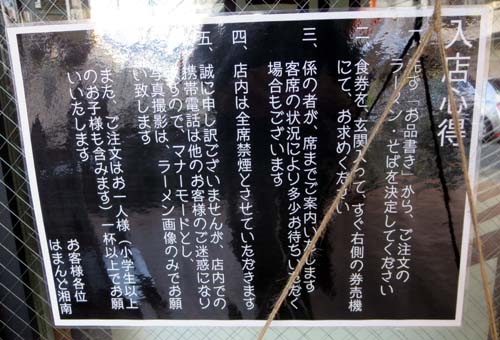 入店心得
一、まず「お品書き」から、ご注文の
ラーメン・そばを決定してください
二、食券を、玄関入って、すぐ右側の券売機
にて、お求めください
三、係の者が、席までご案内いたします
客席の状況により多少お待ちいただく
場合もございます
四、店内は全席禁煙とさせていただきます
五、誠に申し訳ございませんが、店内での
携帯電話は他のお客様のご迷惑になり
ますので、マナーモードとし、
写真撮影は、ラーメン画像のみでお願
い致します
また、ご注文はお一人様(小学生以上
のお子様も含みます)一杯以上でお願
いいたします
お客様各位
はまんど湘南